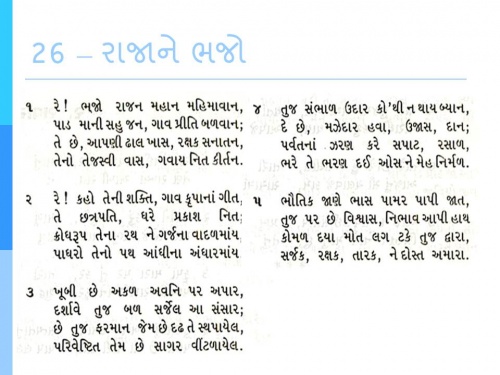 26 – રાજાને ભજો
૧ રે! ભજો રાજન મહાન મહિમાવાન,
પાડ માની સહુ જન, ગાવ પ્રીતિ બળવાન;
તે છે, આપણી ઢાલ ખાસ, રક્ષક સનાતન,
તેનો તેજસ્વી વાસ, ગવાય નિત કીર્તન.
૨ રે! કહો તેની શક્તિ, ગાવ કૃપાનાં ગીત,
તે છત્રપતિ, ધરે પ્રકાશ નિત;
ક્રોધરૂપ તેના રથ ને ગર્જના વાદળમાંય
પાધરો તેનો પથ આંધીના અંધારમાંય
૩ ખૂબી છે અકળ અવનિ પર અપાર,
દર્શાવે તુજ બળ સર્જેલ આ સંસાર;
છે તુજ ફરમાન જેમ છે દૃઢ તે સ્થપાયેલ,
પરિવેષ્ટિત તેમ છે સાગર વીંટળાયેલ.
૪ તુજ સંભાળ ઉદાર કો'થી ન થાય બ્યાન,
દે છે, મઝેદાર હવા, ઉજાસ, દાન;
પર્વતનાં ઝરણ કરે સપાટ, રસાળ,
ભરે તે ભરણ દઈ ઓસ ને મેહ નિર્મળ.
૫ ભૌતિક જાણે ભાસ પામર પાપી જાત,
તુજ પર છે વિશ્વાસ, નિભાવ આપી હાથ
કોમળ દયા મોત લગ ટકે તુજ દ્વારા,
સર્જક, રક્ષક, તારક, ને દોસ્ત અમારા.